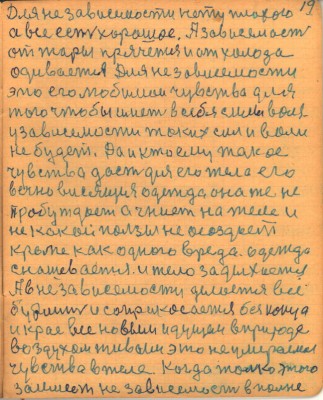 19
Для независимости нету плохого
а все есть хорошое. А зависемость
от жары прячется и от холода
одивается Для независемости
это его любимаи чувства для
того чтобы имет в себя силы воли
у зависемости таких сил и воли
не будет. Да и кто ему такое
чувства даст для его тела его
вечно висящия одежда она же не
пробуждает а гниет на теле и
не какой пользы не создает
кроме как одного вреда. одежда
снашевается. и тело задыхается
А в независемости делается всё
будит и соприкосается без конца
и края все новыми идущим в природе
воздухом живым это не умераемое
чувства в теле. Когда только этого
займеет не зависемость в полне